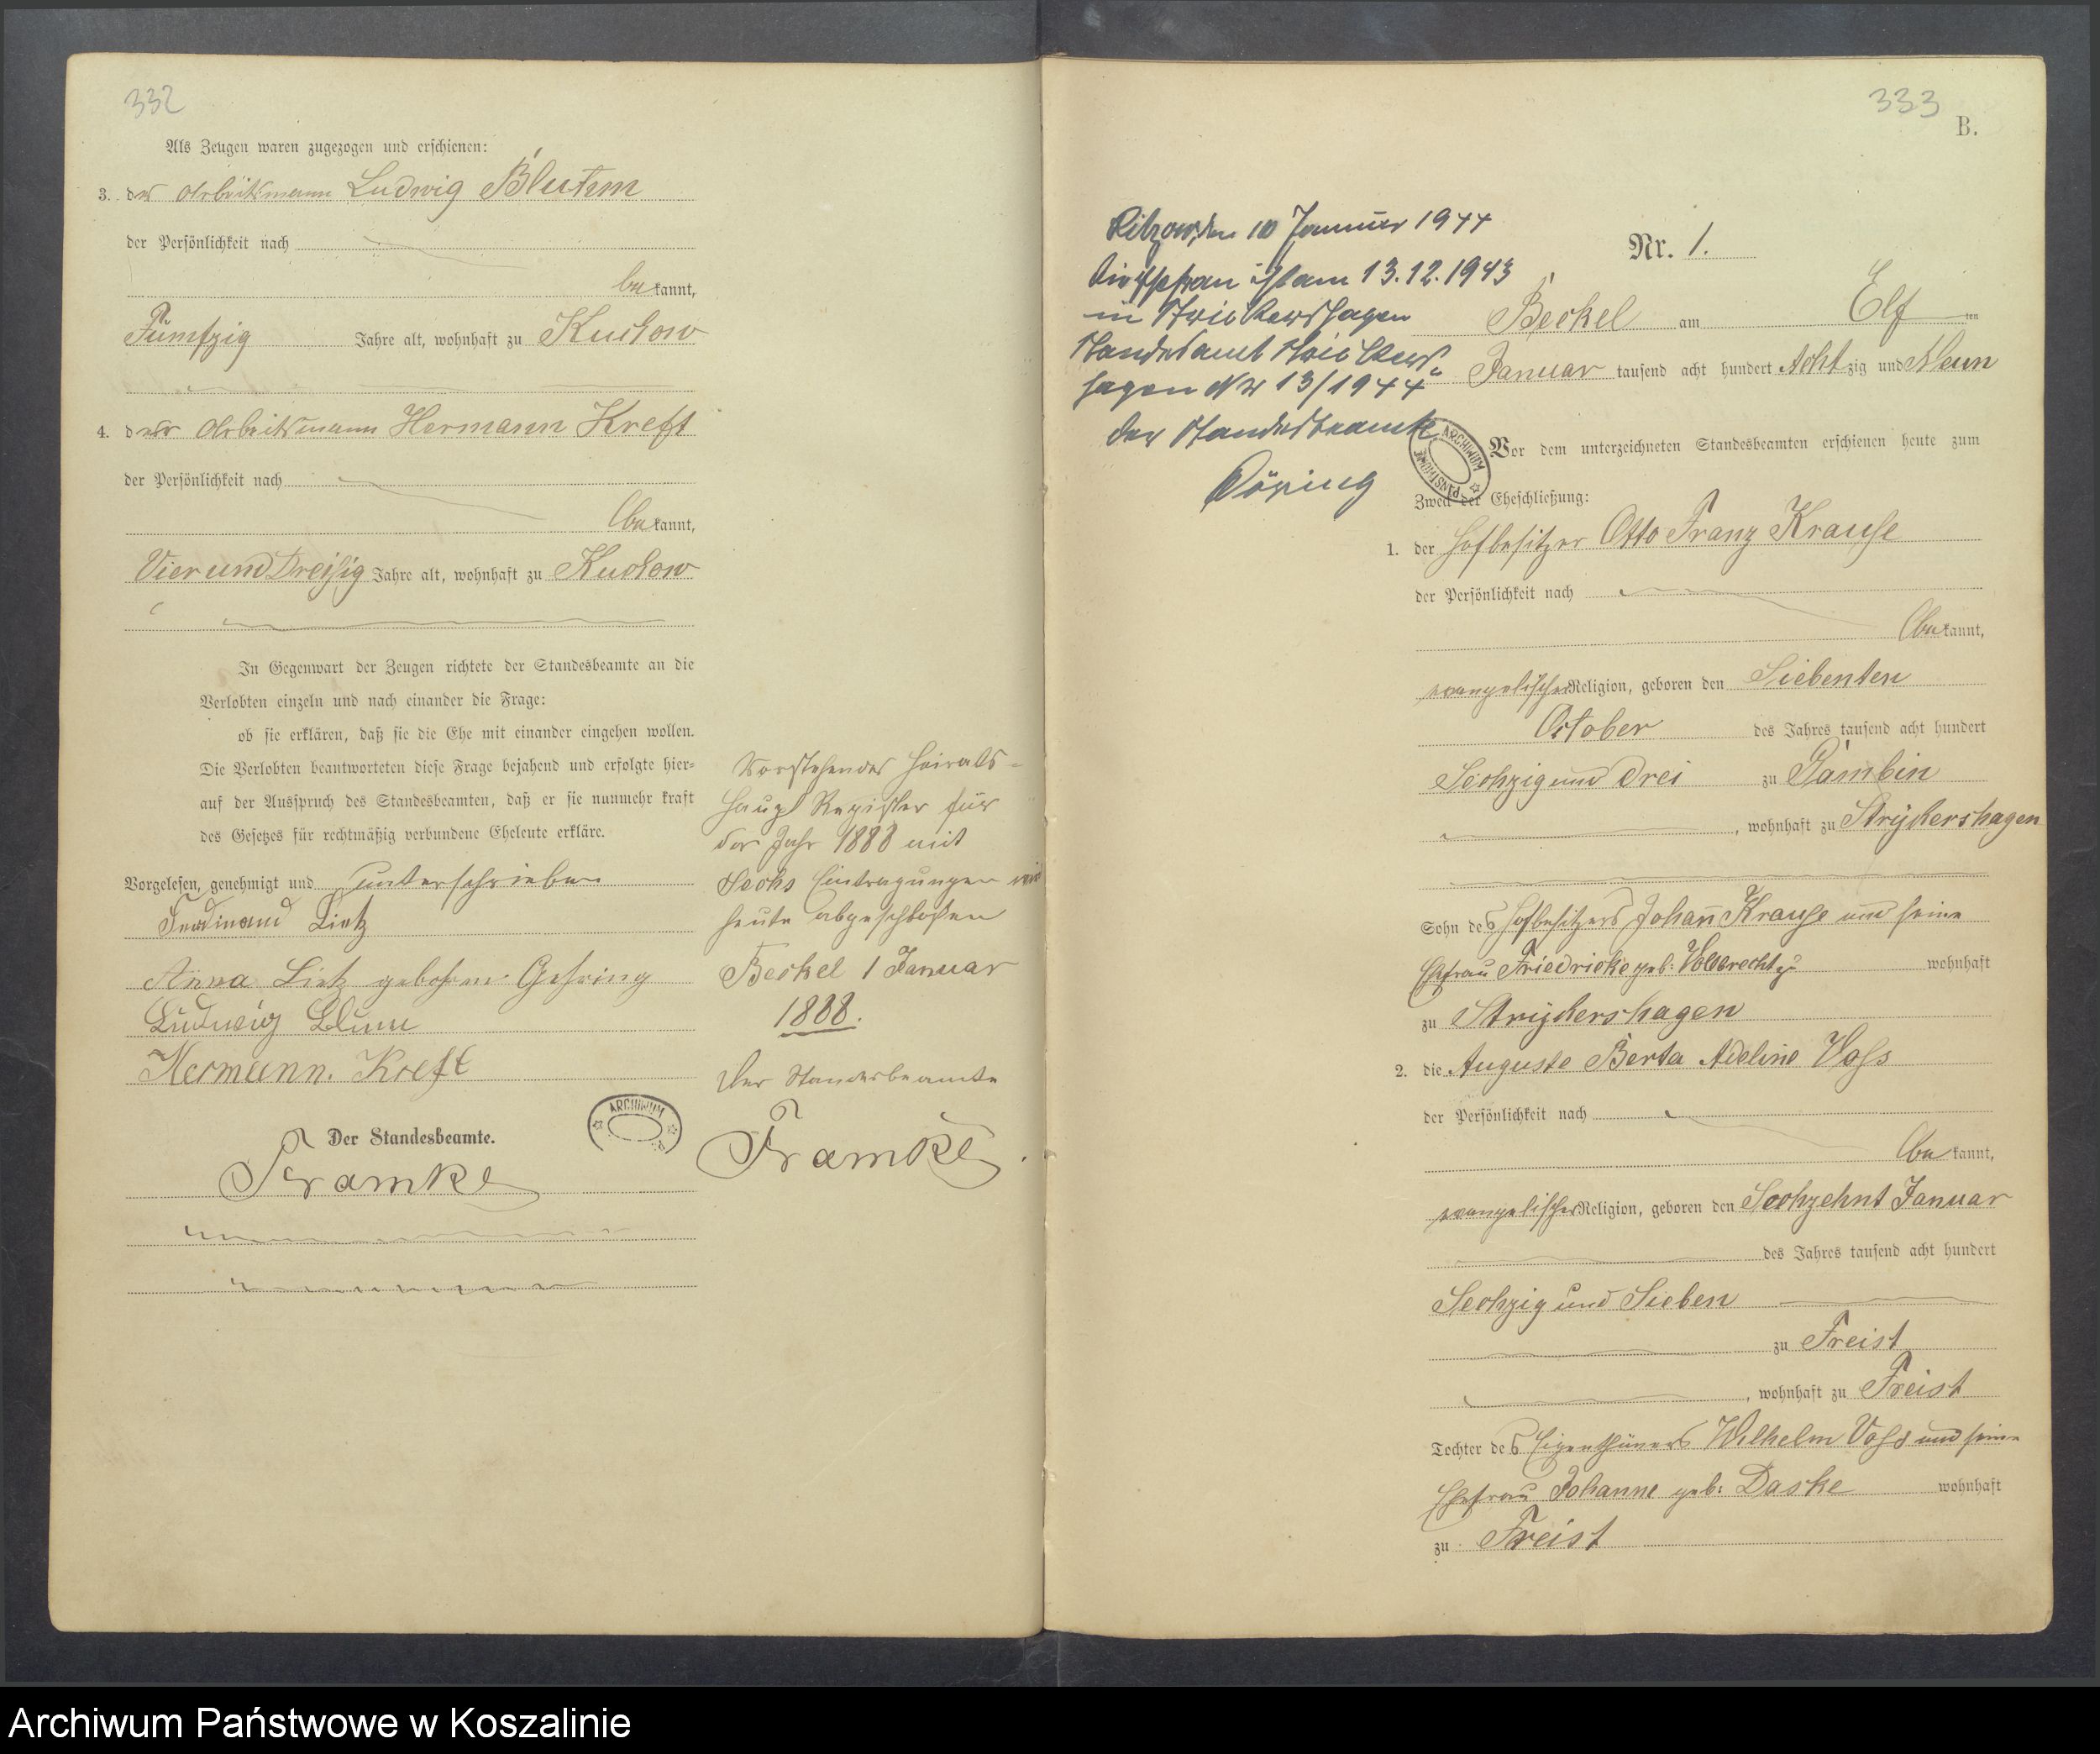 332
Als Zeugen waren zugezogen und erschienen:
3. der Arbeitsmann Ludwig Blum
der Persönlichkeit nach
bekannt,
Fümfzig Jahre alt, wohnhaft zu Kuckow
4. der Arbeitsmann Hermann Kreft
der Persönlichkeit nach
bekannt,
Vier und Dreißig Jahre alt, wohnhaft zu Kuckow
In Gegenwart der Zeugen richtete der Standesbeamte an die
Verlobten einzeln und nach einander die Frage:
ob sie erklären, daß sie die Ehe mit einander eingehen wollen.
Die Verlobten beantworteten diese Frage bejahend und erfolgte hier-
auf der Ausspruch des Standesbeamten, daß er sie nunmehr kraft
des Gesetzes für rechtmäßig verbundene Eheleute erkläre.
Vorgelesen, genehmigt und unterschrieben
Ferdinand Lietz
Anna Lietz geborene Gehring
Ludwig Blum
Hermann. Kreft
Der Standesbeamte.
Framke
ARCHIWUM
Vorstehendes Heirats-
Haupt Register für
das Jahr 1888 mit
Sechs Eintragungen wird
heute abgeschlossen
Beckel 1 Januar
1888.
Der Standesbeamte
Framke
333
B.
Nr. 1.
Ritzow, den 10 Januar 1944
Die Ehefrau ist am 13.12.1943
in Strickershagen
Standesamt Strickers-
hagen Nr 13/1944
Der Standesbeamte
Döring
ARCHIWUM PAŃSTWOWE
Beckel am Elf ten
Januar tausend acht hundert Achtzig und Neun
Vor dem unterzeichneten Standesbeamten erschienen heute zum
Zweck der Eheschließung:
1. der Hofbesitzer Otto Franz Krause
der Persönlichkeit nach
bekannt,
evangelischer Religion, geboren den Siebenten
October des Jahres tausend acht hundert
Sechzig und Drei zu Gambin
, wohnhaft zu Stryckershagen
Sohn des Hofbesitzers Johann Krause und seine
Ehefrau Friedricke geb: Vollbrecht wohnhaft
zu Stryckershagen
2. die Auguste Berta Adeline Voss
der Persönlichkeit nach
bekannt,
evangelischer Religion, geboren den Sechzehnt Januar
des Jahres tausend acht hundert
Sechzig und Sieben
zu Freist
, wohnhaft zu Freist
Tochter des Eigenthümers Wilhelm Voss und seine
Ehefrau Johanne geb: Daske wohnhaft
zu Freist
Archiwum Państwowe w Koszalinie